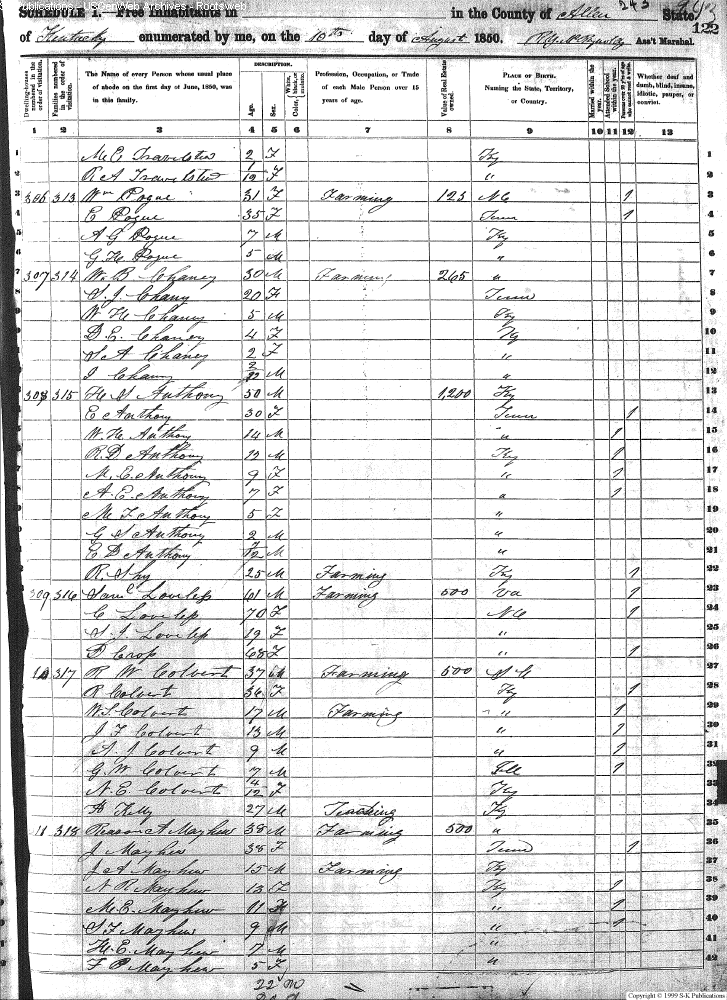 Publications - USGenWeb Archives - Rootsweb
SCHEDULE I.—Free Inhabitants in in the County of Allen State
of Kentucky enumerated by me, on the 10th day of August 1850. Ass't Marshal. 122
Dwelling-houses numbered in the order of visitation.
Families numbered in the order of visitation.
The Name of every Person whose usual place of abode on the first day of June, 1850, was in this family.
DESCRIPTION.
Age.
Sex.
Color, White, black, or mulatto.
Profession, Occupation, or Trade of each Male Person over 15 years of age.
Value of Real Estate owned.
PLACE OF BIRTH. Naming the State, Territory, or Country.
Married within the year.
Attended School within the year.
Persons over 20 y'rs of age who cannot read & write.
Whether deaf and dumb, blind, insane, idiotic, pauper, or convict.
1 2 3 4 5 6 7 8 9 10 11 12 13
1 M E Travelsted 2 F Ky 1
2 R A Travelsted 1/12 F " 2
3 306 313 Wm Pogue 31 F Farming 123 NC 1 3
4 E Pogue 35 F Tenn 1 4
5 A G Pogue 7 M Ky 5
6 G H Pogue 5 M " 6
7 307 314 W B Chaney 30 M Farming 265 " 7
8 S J Chany 20 F Tenn 8
9 W H Chaney 5 M Ky 9
10 D E Chaney 4 F Ky 10
11 S A Chaney 2 F " 11
12 J Chany 2/12 M " 12
13 308 315 H S Anthony 50 M 1,200 Ky 13
14 E Anthony 30 F Tenn 1 14
15 W H Anthony 14 M " 1 15
16 R D Anthony 12 M Ky 1 16
17 M E Anthony 9 F " 1 17
18 A E Anthony 7 F " 1 18
19 M F Anthony 5 F " 19
20 G S Anthony 2 M " 20
21 E D Anthony /12 M " 21
22 R Shy 25 M Farming Ky 1 22
23 309 316 Saml Loveless 61 M Farming 500 Va 1 23
24 C Loveless 70 F NC 1 24
25 S J Loveless 19 F " 25
26 D Crop 68 F " 1 26
27 10 317 R W Colvert 37 M Farming 500 27
28 R Colvert 36 F Ky 1 28
29 W S Colvert 17 M Farming " 1 29
30 J F Colvert 13 M " 1 30
31 A J Colvert 9 M " 1 31
32 G W Colvert 7 M 1 32
33 N E Colvert 4/12 F Ky 33
H Kelly 27 M Teaching Ky
11 318 Reason A Mayhew 38 M Farming 500 "
J Mayhew 38 F Tenn 1
J A Mayhew 15 M Farming Ky
N R Mayhew 13 F Ky 1
M E Mayhew 11 F " 1
S F Mayhew 9 M " 1
H E Mayhew 7 M "
F P Mayhew 5 F "
22 M
Copyright © 1999 S-K Publications